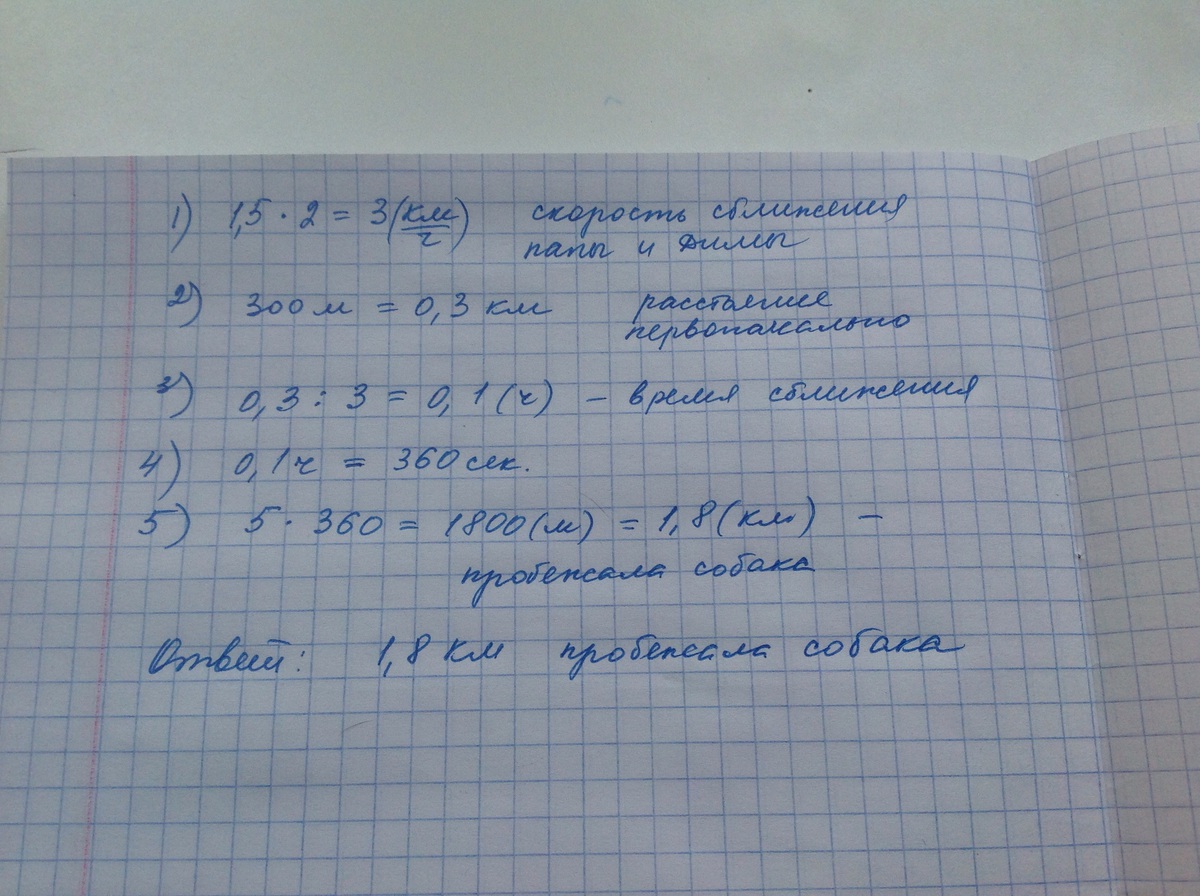 1) 1,5 · 2 = 3 (км/ч) скорость сближения
папы и Димы
2) 300 м = 0,3 км расстояние
первоначально
3) 0,3 : 3 = 0,1 (ч) – время сближения
4) 0,1 ч = 360 сек.
5) 5 · 360 = 1800 (м) = 1,8 (км) –
пробежала собака
Ответ: 1,8 км пробежала собака